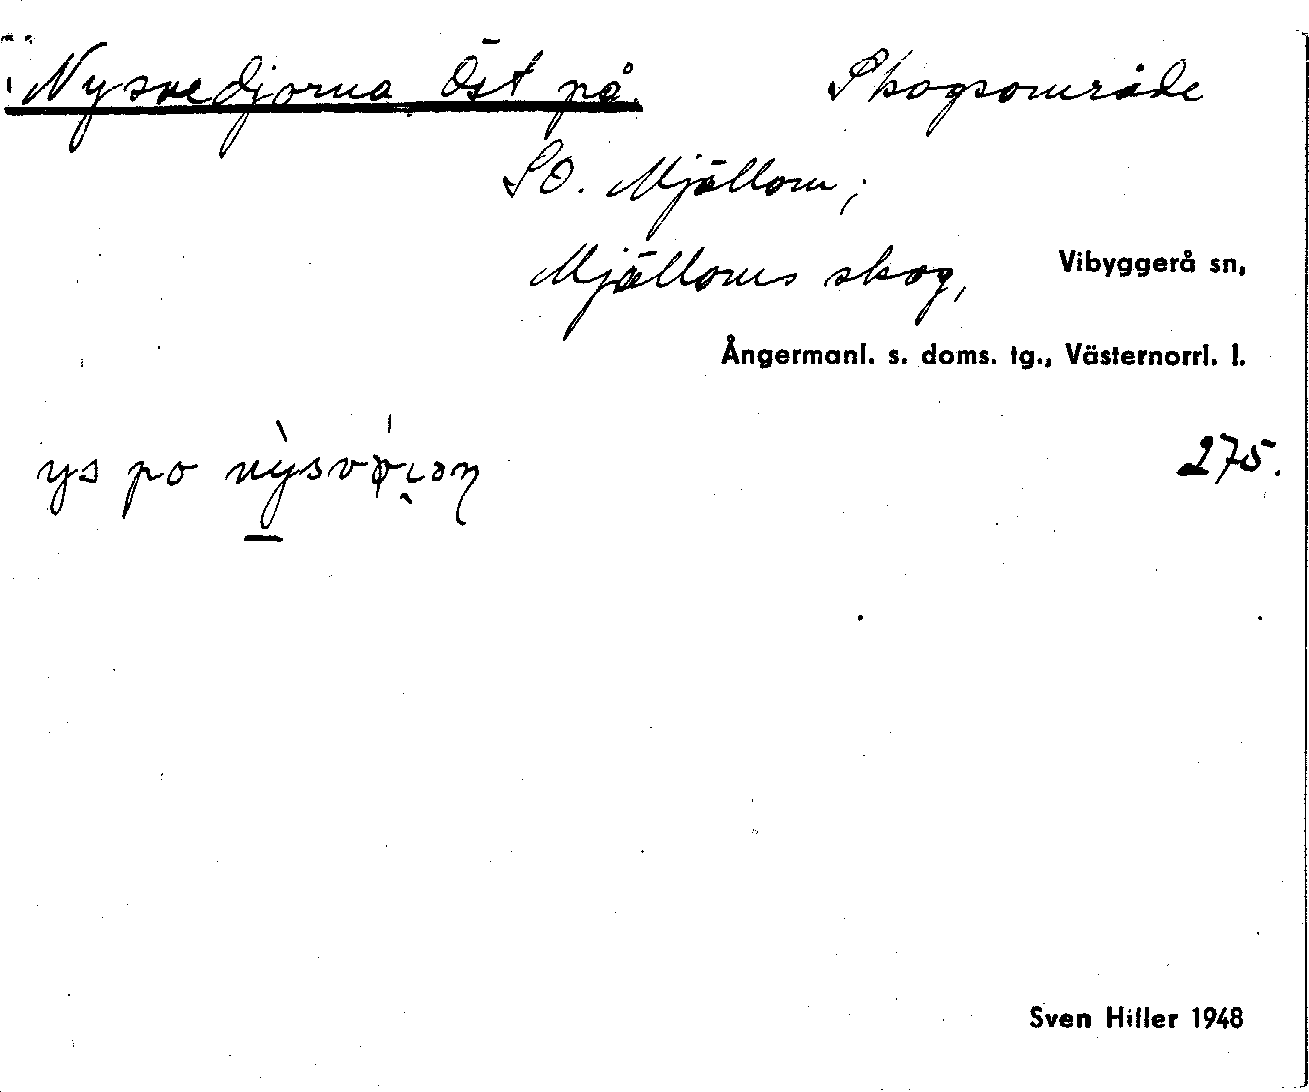 Nysvedjorna, Öst på. Skogsområde
SO. Mjällom;
Mjälloms skog, Vibyggerå sn,
Ångermanl. s. doms. tg., Västernorrl. l.
ys po 275.
Sven Hiller 1948